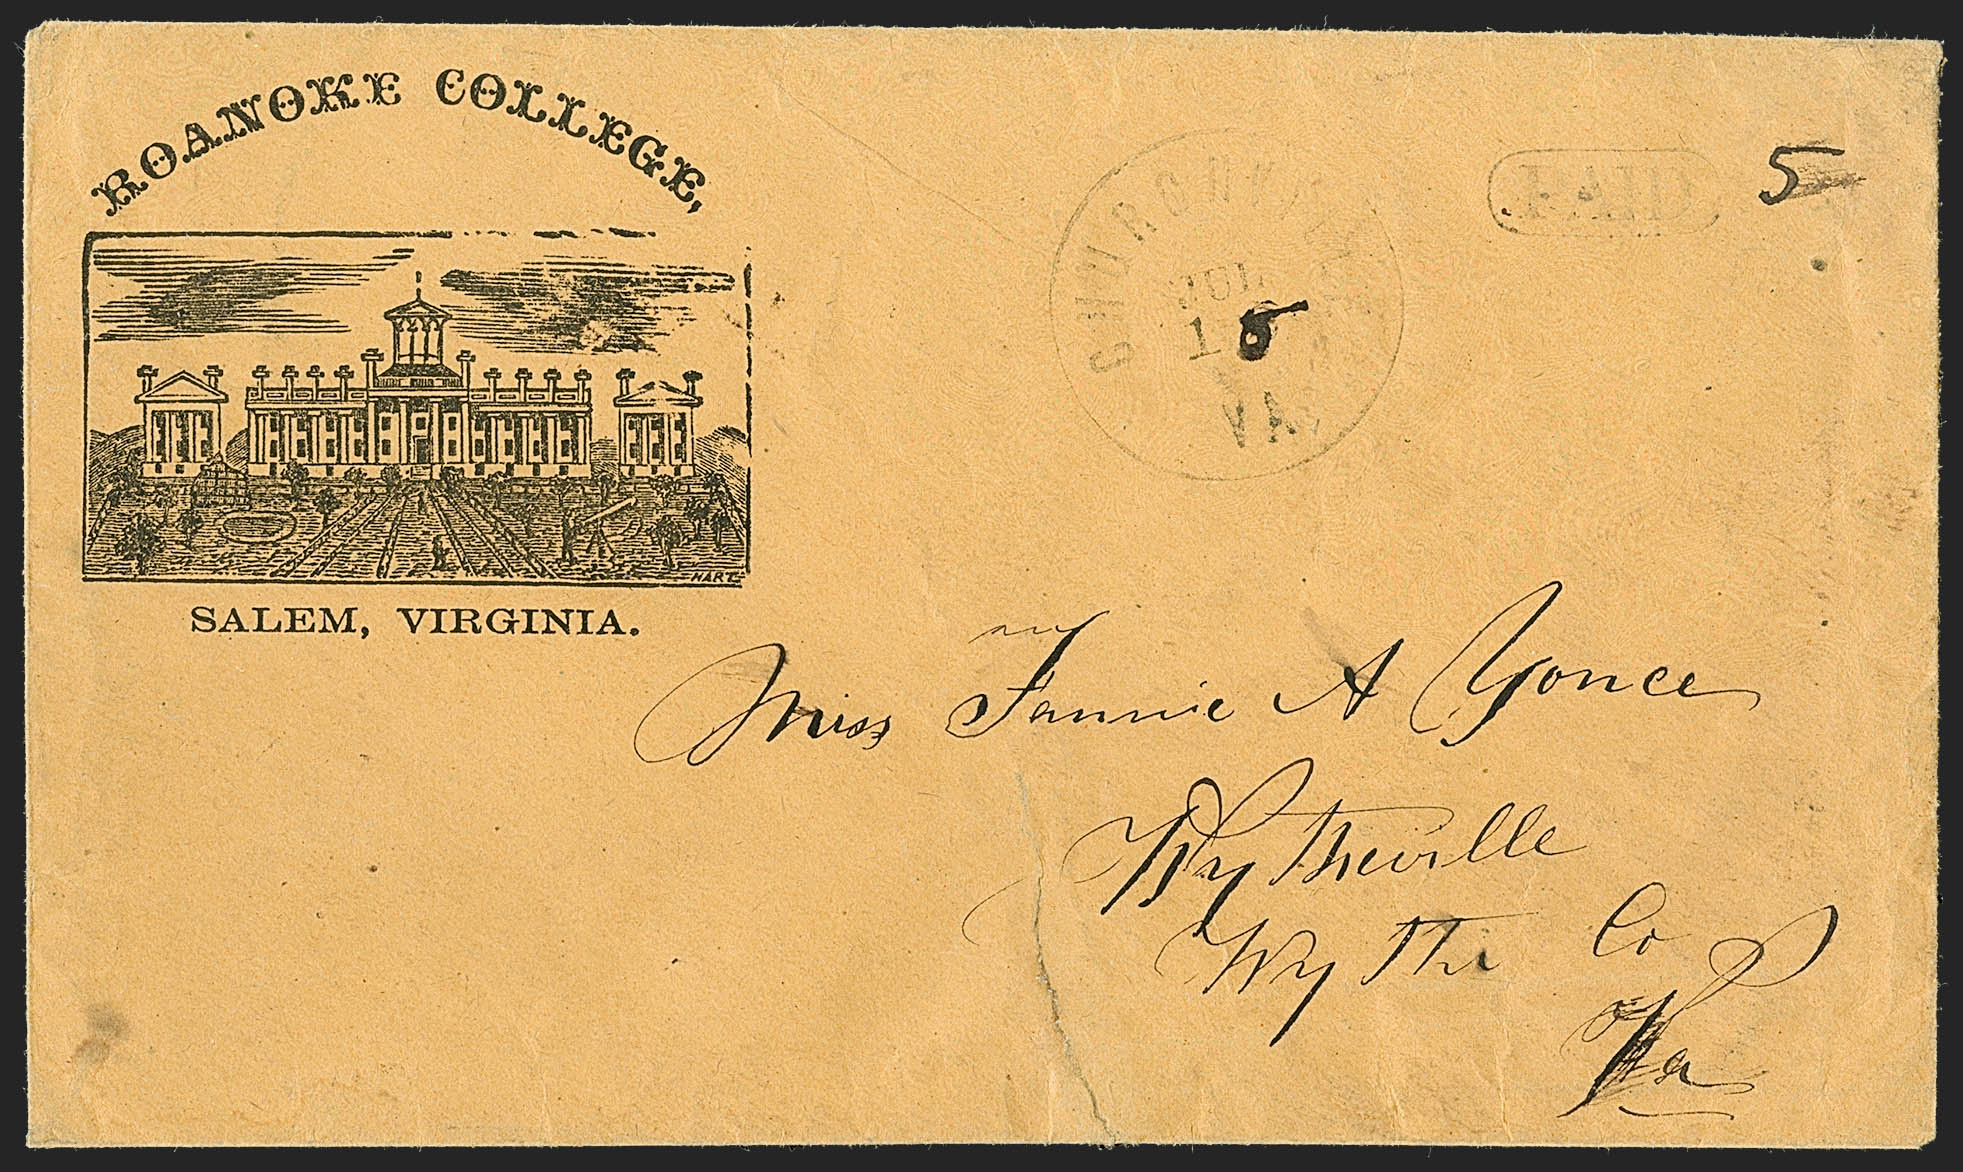 ROANOKE COLLEGE,
HART
SALEM, VIRGINIA.
JUL
1
VA.
PAID
5
Miss Fannie A Yonce
Wytheville
Wythe Co
Va